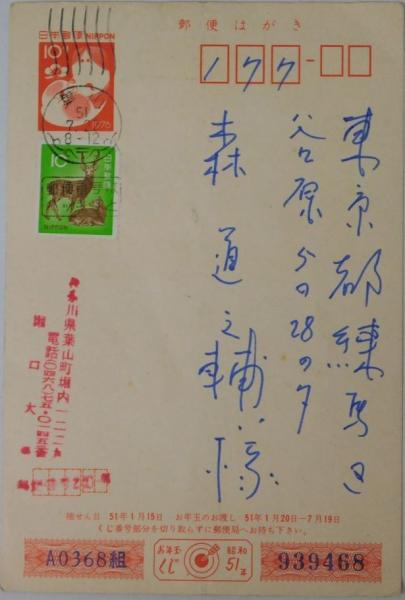 郵便はがき
日本郵便 NIPPON
10
1976
177
51
7.
8-12
日本郵便
10
NIPPON
東京都練馬区
谷原5の28の7
森通之輔様
神奈川県葉山町堀内
電話(〇四六八)七五・〇一四五番
堀口大
抽せん日 51年1月15日 お年玉のお渡し 51年1月20日−7月19日
くじ番号部分を切り取らずに郵便局へお持ち下さい。
A0368組
お年玉 くじ
昭和 51年
939468